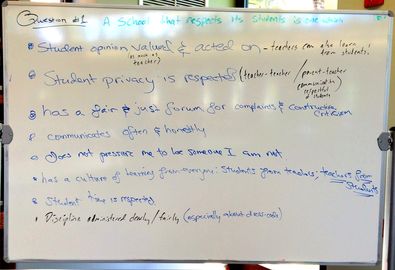 Question #1 A School that respects its students is one which
Student opinion valued & acted on - teachers can also learn from students!
(as much as teacher)
Student privacy is respected (teacher-teacher / parent-teacher communication respectful of students
has a fair & just forum for complaints & constructive criticism
communicates often & honestly
Does not pressure me to be someone I am not
has a culture of learning from everyone: students from teachers; teachers from students
Student time is respected
Discipline administered clearly/fairly (especially about dress-code)